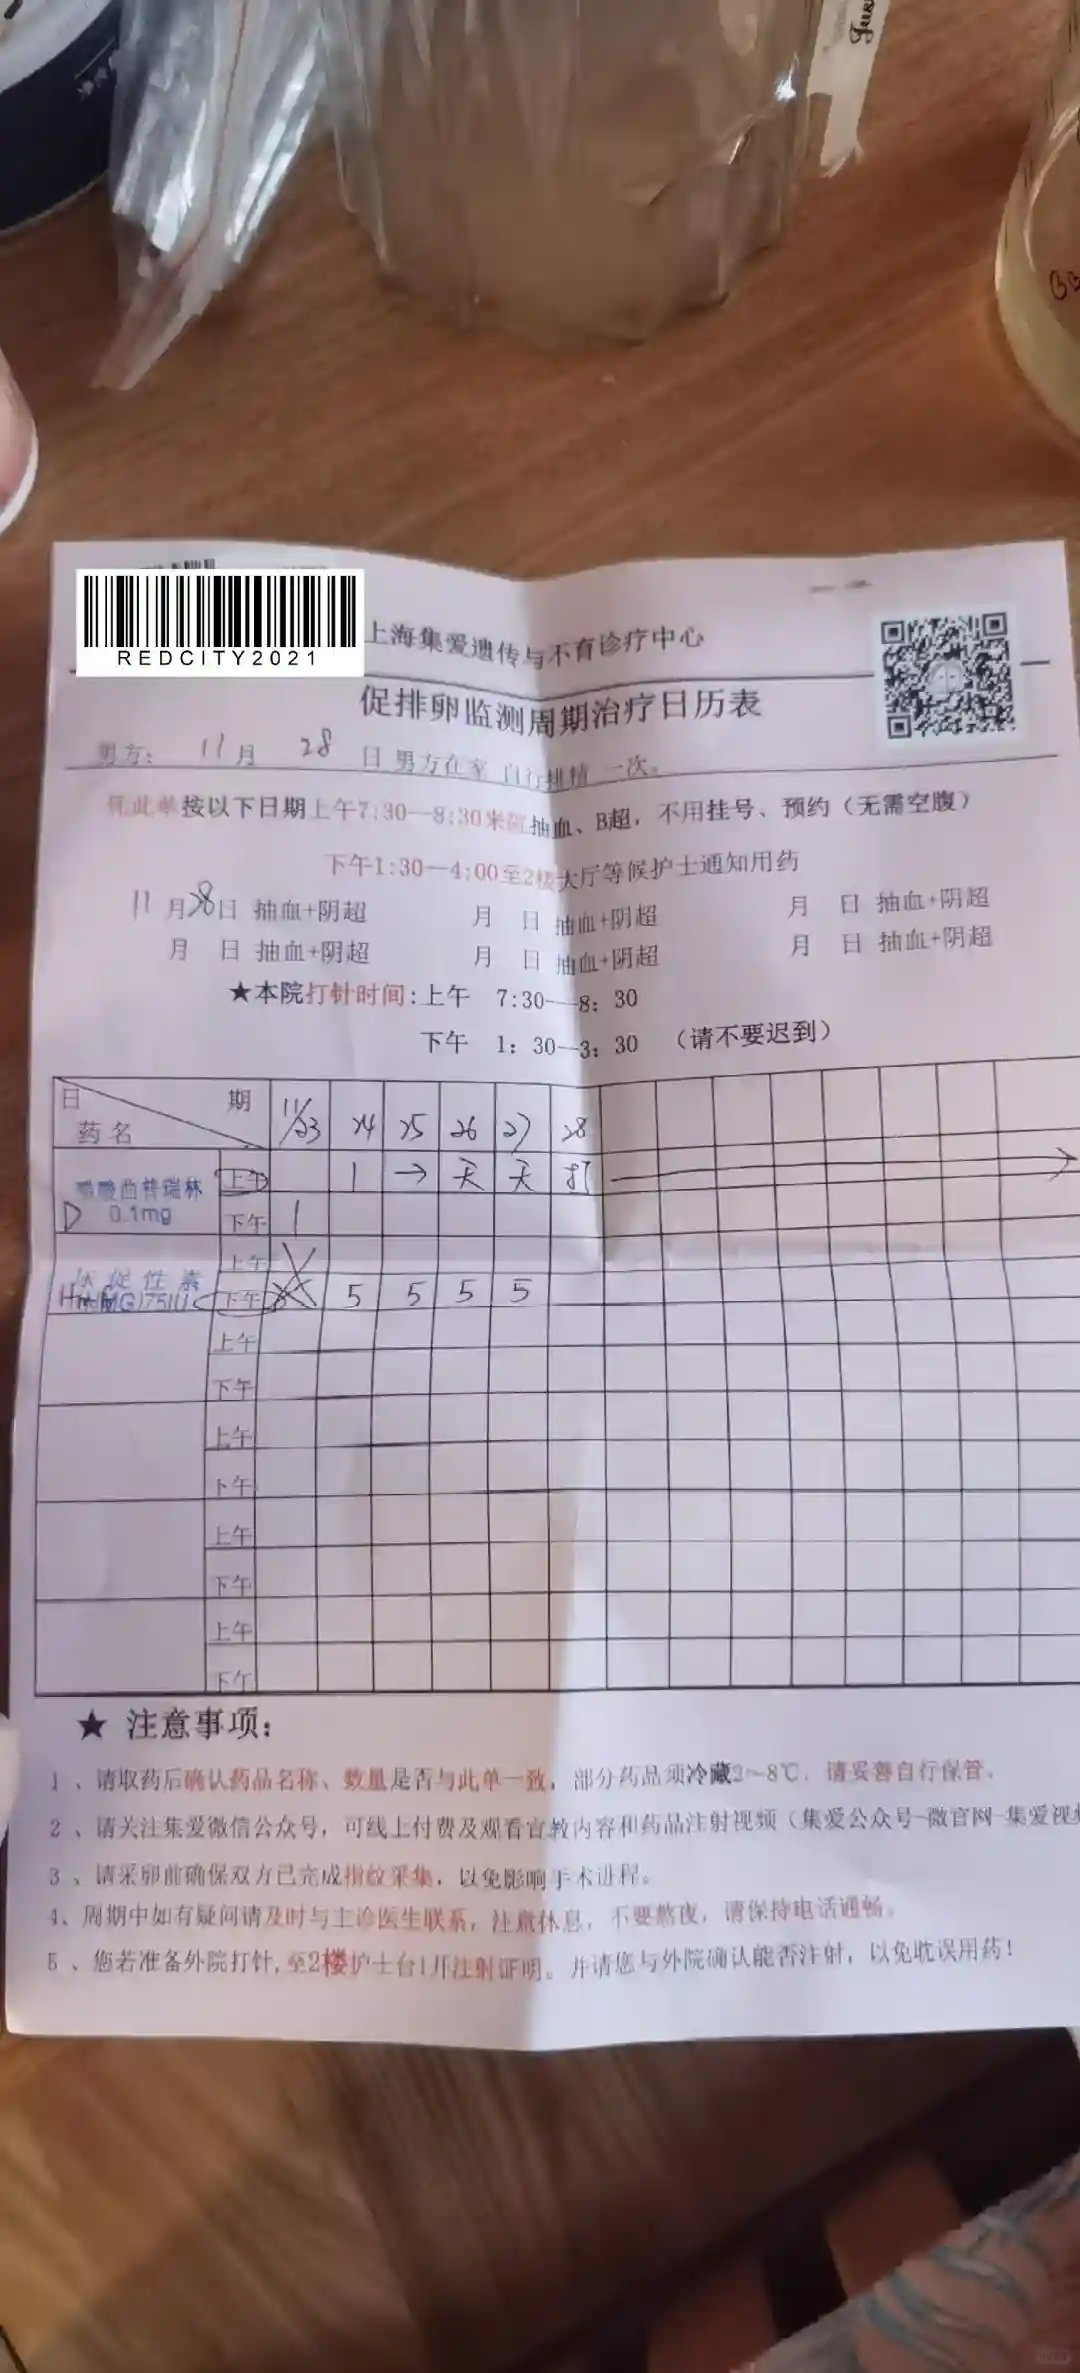 REDCITY2021
上海集爱遗传与不育诊疗中心
促排卵监测周期治疗日历表
男方: 11月 28 日 男方在家 自行排精 一次。
凭此单按以下日期上午7:30—8:30来院抽血、B超，不用挂号、预约（无需空腹）
下午1:30—4:00至2楼大厅等候护士通知用药
11月28日 抽血+阴超 月 日 抽血+阴超 月 日 抽血+阴超
月 日 抽血+阴超 月 日 抽血+阴超 月 日 抽血+阴超
★本院打针时间:上午 7:30--8: 30
下午 1: 30--3: 30 （请不要迟到）
日 期 药名 11/23 24 25 26 27 28
曲普瑞林 D 0.1mg 上午 1 → 天 天 打 →
下午 1
上午
促性素 下午 5 5 5 5
上午
下午
上午
下午
上午
下午
上午
下午
★ 注意事项:
1、请取药后确认药品名称、数量是否与此单一致，部分药品须冷藏2~8℃，请妥善自行保管。
2、请关注集爱微信公众号，可线上付费及观看宣教内容和药品注射视频（集爱公众号-微官网-集爱视频
3、请采卵前确保双方已完成指纹采集，以免影响手术进程。
4、周期中如有疑问请及时与主诊医生联系，注意休息，不要熬夜，请保持电话通畅。
5、您若准备外院打针,至2楼护士台1开注射证明。并请您与外院确认能否注射，以免耽误用药!